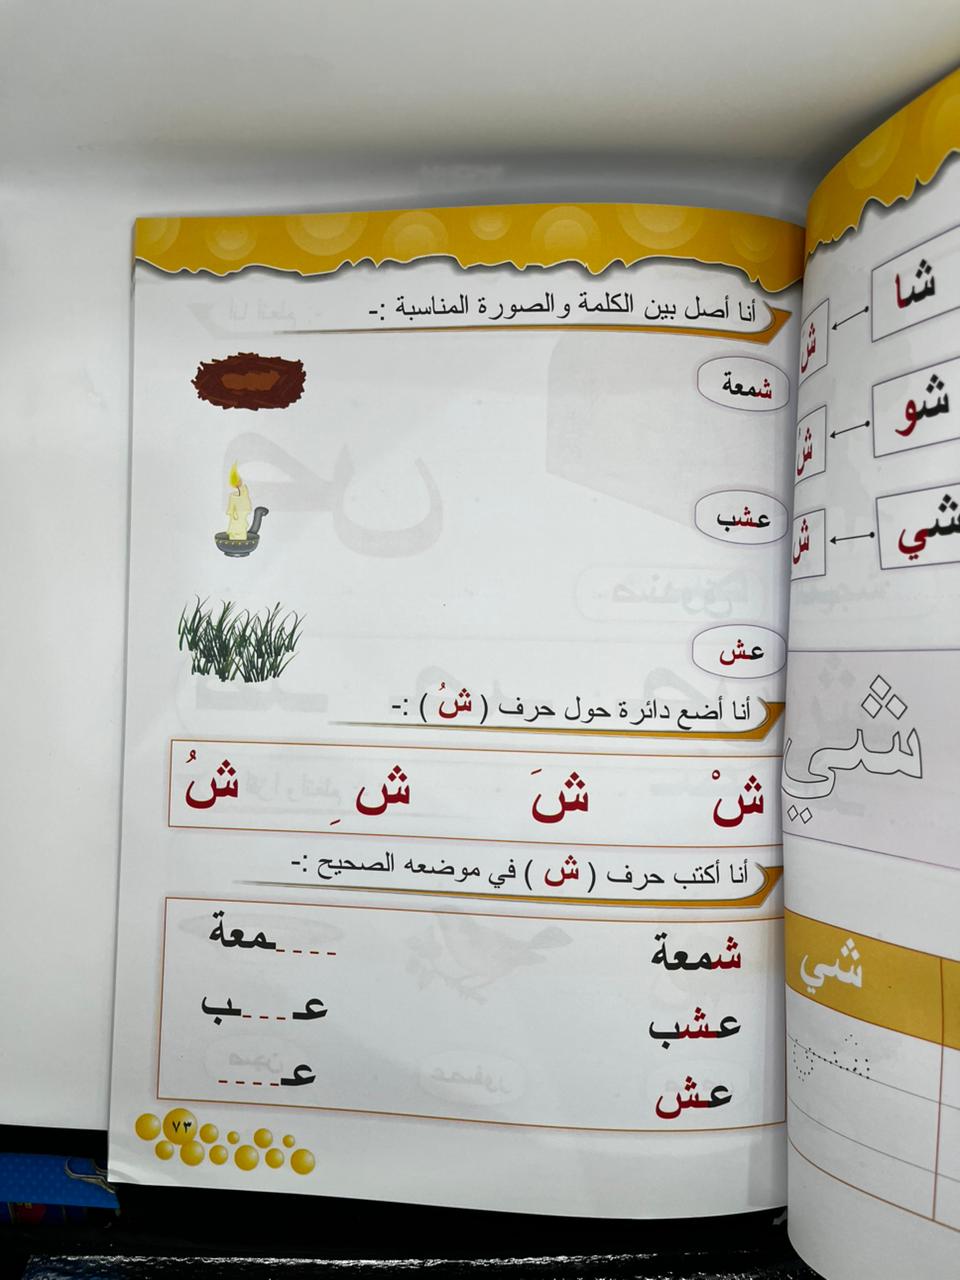 أنا أصل بين الكلمة والصورة المناسبة :-
شمعة
عشب
عش
أنا أضع دائرة حول حرف ( شُ ) :-
شْ شَ شِ شُ
أنا أكتب حرف ( ش ) في موضعه الصحيح :-
شمعة ----ـمعة
عشب عـ---ـب
عش عـ----
٧٣
شا
شو
شي
شي
شي